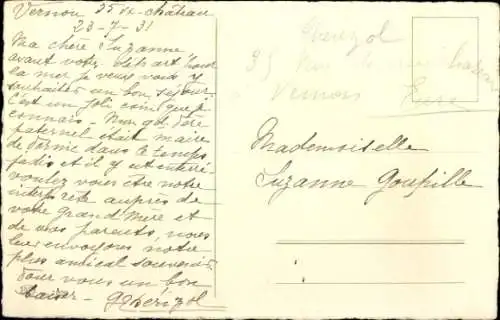 Vernon 35 rx-château
23-7-31
Ma chère Suzanne,
avant votre départ pour
la mer je veux vous
souhaiter un bon séjour.
C'est un joli coin que je
connais - Mon gd. père
paternel était maire
de Pornic dans le temps
jadis et il y est enterré -
voulez vous être notre
interprète auprès de
votre Grand'Mère et
de vos parents, nous
leur envoyons notre
plus amical souvenir.
Pour vous un bon
baiser -
Vernon
Eure
Mademoiselle
Suzanne Goupille